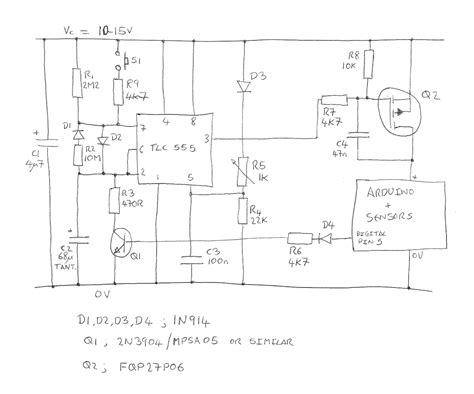 Vc = 10-15V
S1
R1
2M2
R9
4K7
D3
R8
10K
Q2
D1
D2
7
4
8
3
TLC 555
6
2
1
5
R7
4K7
C4
47n
C1
4µ7
R2
10M
R5
1K
R3
470R
R4
22K
ARDUINO
+
SENSORS
DIGITAL
PIN 5
0V
C2
68µ
TANT.
Q1
C3
100n
R6
4K7
D4
0V
D1,D2,D3,D4 ; 1N914
Q1, 2N3904/MPSA05 OR SIMILAR
Q2; FQP27P06